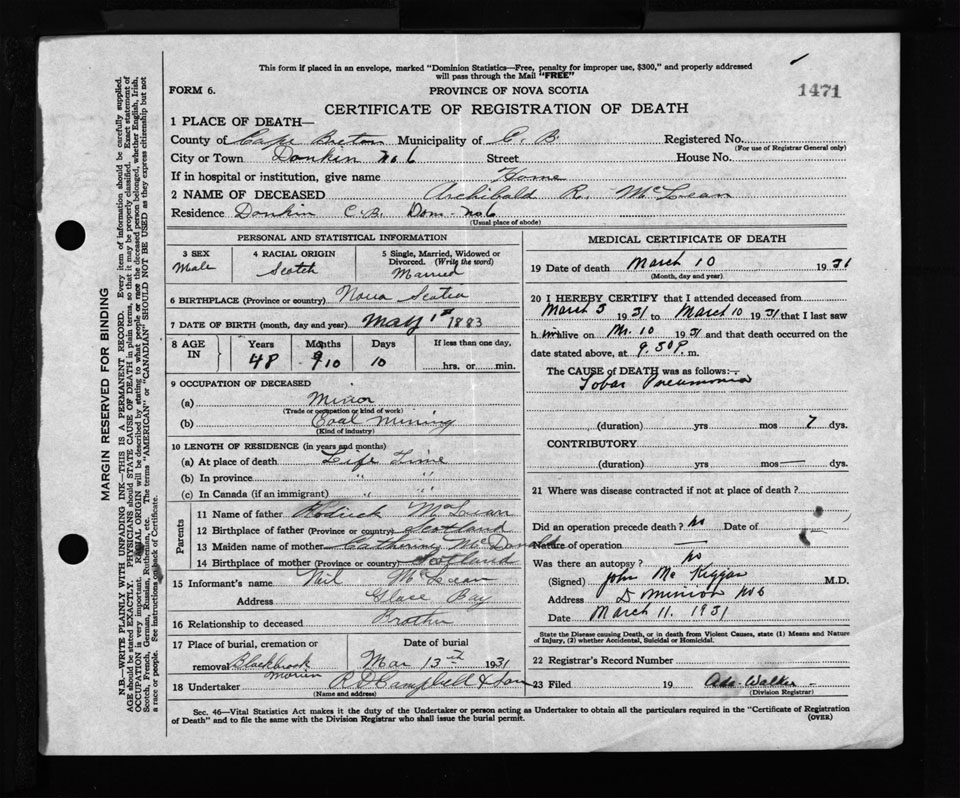 This form if placed in an envelope, marked "Dominion Statistics—Free, penalty for improper use, $300," and properly addressed
will pass through the Mail "FREE"
1471
FORM 6.
PROVINCE OF NOVA SCOTIA
CERTIFICATE OF REGISTRATION OF DEATH
1 PLACE OF DEATH—
County of Cape Breton Municipality of C. B. Registered No.
(For use of Registrar General only)
City or Town Donkin No 6 Street House No.
If in hospital or institution, give name Home
2 NAME OF DECEASED Archibald R. McLean
Residence Donkin C.B. Dom- No 6
(Usual place of abode)
PERSONAL AND STATISTICAL INFORMATION
3 SEX Male
4 RACIAL ORIGIN Scotch
5 Single, Married, Widowed or Divorced. (Write the word) Married
6 BIRTHPLACE (Province or country) Nova Scotia
7 DATE OF BIRTH (month, day and year) May 1st 1883
8 AGE IN
Years Months Days If less than one day,
48 9 10 10 hrs. or min.
9 OCCUPATION OF DECEASED
(a) Minor
(Trade or occupation or kind of work)
(b) Coal Mining
(Kind of industry)
10 LENGTH OF RESIDENCE (in years and months)
(a) At place of death Life Time
(b) In province " "
(c) In Canada (if an immigrant) " "
Parents
11 Name of father Rodrick McLean
12 Birthplace of father (Province or country) Scotland
13 Maiden name of mother Catherine McDonald
14 Birthplace of mother (Province or country) Scotland
15 Informant's name Neil McLean
Address Glace Bay
16 Relationship to deceased Brother
17 Place of burial, cremation or removal Blackbrook Morien
Date of burial Mar 13th 1931
18 Undertaker R D Campbell & Son
(Name and address)
MEDICAL CERTIFICATE OF DEATH
19 Date of death March 10 1931
(Month, day and year)
20 I HEREBY CERTIFY that I attended deceased from
March 3 1931 to March 10 1931 that I last saw
h im alive on Mr. 10 1931 and that death occurred on
date stated above, at 9.30 P. m.
The CAUSE of DEATH was as follows:—
Lobar Pneumonia
(duration) yrs. mos 7 dys.
CONTRIBUTORY
(duration) yrs. mos — dys.
21 Where was disease contracted if not at place of death?
Did an operation precede death? No Date of
Nature of operation —
Was there an autopsy? No
(Signed) John McKiggan M.D.
Address Dominion No 6
Date March 11. 1931
State the Disease causing Death, or in death from Violent Causes, state (1) Means and Nature
of Injury, (2) whether Accidental, Suicidal or Homicidal.
22 Registrar's Record Number
23 Filed 19 Ada Walker
(Division Registrar)
Sec. 46—Vital Statistics Act makes it the duty of the Undertaker or person acting as Undertaker to obtain all the particulars required in the "Certificate of Registration
of Death" and to file the same with the Division Registrar who shall issue the burial permit. (OVER)
MARGIN RESERVED FOR BINDING
N.B.—WRITE PLAINLY WITH UNFADING INK—THIS IS A PERMANENT RECORD. Every item of information should be carefully supplied.
AGE should be stated EXACTLY. PHYSICIANS should STATE CAUSE OF DEATH in plain terms, so that it may be properly classified. Exact statement of
OCCUPATION is very important. RACIAL ORIGIN will be described by stating to what people or race the deceased person belonged, whether English, Irish,
Scotch, French, German, Russian, Ruthenian, etc. The terms "AMERICAN" or "CANADIAN" SHOULD NOT BE USED as they express citizenship but not
a race or people. See instructions on back of Certificate.